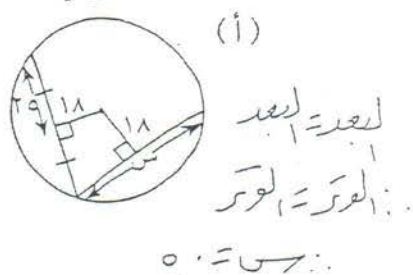 (أ)
٢٥
١٨
١٨
س
البعد = البعد
∴ الوتر = الوتر
∴ س = ٥٠